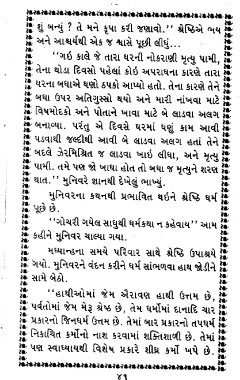 શું બન્યું ? તે મને કૃપા કરી જણાવો.” શ્રેષ્ઠિએ ભય
અને આશ્ચર્યથી એક જ શ્વાસે પૂછી લીધું...
“ગઈ કાલે જે તારા ઘરની નોકરાણી મૃત્યુ પામી,
તેના થોડા દિવસો પહેલાં કોઈ અપરાધના કારણે તારા
ઘરના બધાએ ઘણો ઠપકો આપ્યો હતો. તેના કારણે તેને
બધા ઉપર અતિગુસ્સો થયો અને મારી નાંખવા માટે
વિષમોદકો અને પોતાને ખાવા માટે બે લાડવા અલગ
બનાવ્યા. પરંતુ એ દિવસે ઘરમાં ઘણું કામ આવી
પડવાથી જલ્દીથી આવી બે લાડવા અલગ હતાં તેને
બદલે ઝેરમિશ્રિત જ લાડવા ખાઈ લીધા, અને મૃત્યુ
પામી. તમે પણ જો ખાધા હોત તો બધા જ મૃત્યુને શરણ
થાત.” મુનિવરે જ્ઞાનથી દેખેલું ભાખ્યું.
મુનિવરના કથનથી પ્રભાવિત થઈને શ્રેષ્ઠિ ધર્મ
પૂછે છે.
“ગોચરી ગયેલ સાધુથી ધર્મકથા ન કહેવાય” આમ
કહીને મુનિવર ચાલ્યા ગયા.
મધ્યાહ્નના સમયે પરિવાર સાથે શ્રેષ્ઠિ ઉપાશ્રયે
ગયો. મુનિવરને વંદન કરીને ધર્મ સાંભળવા હાથ જોડીને
સામે બેઠો.
“હાથીઓમાં જેમ ઐરાવણ હાથી ઉત્તમ છે,
પર્વતોમાં જેમ મેરૂ શ્રેષ્ઠ છે, તેમ ધર્મોમાં દાનાદિ ચાર
પ્રકારનો જિનધર્મ ઉત્તમ છે. તેમાં બાર પ્રકારનો તપધર્મ
નિકાચિત કર્મોનો નાશ કરવામાં શક્તિશાળી છે. તેમાં
પણ સ્વાધ્યાયથી વિશેષ પ્રકારે શીઘ્ર કર્મો ખપે છે.
૪૧